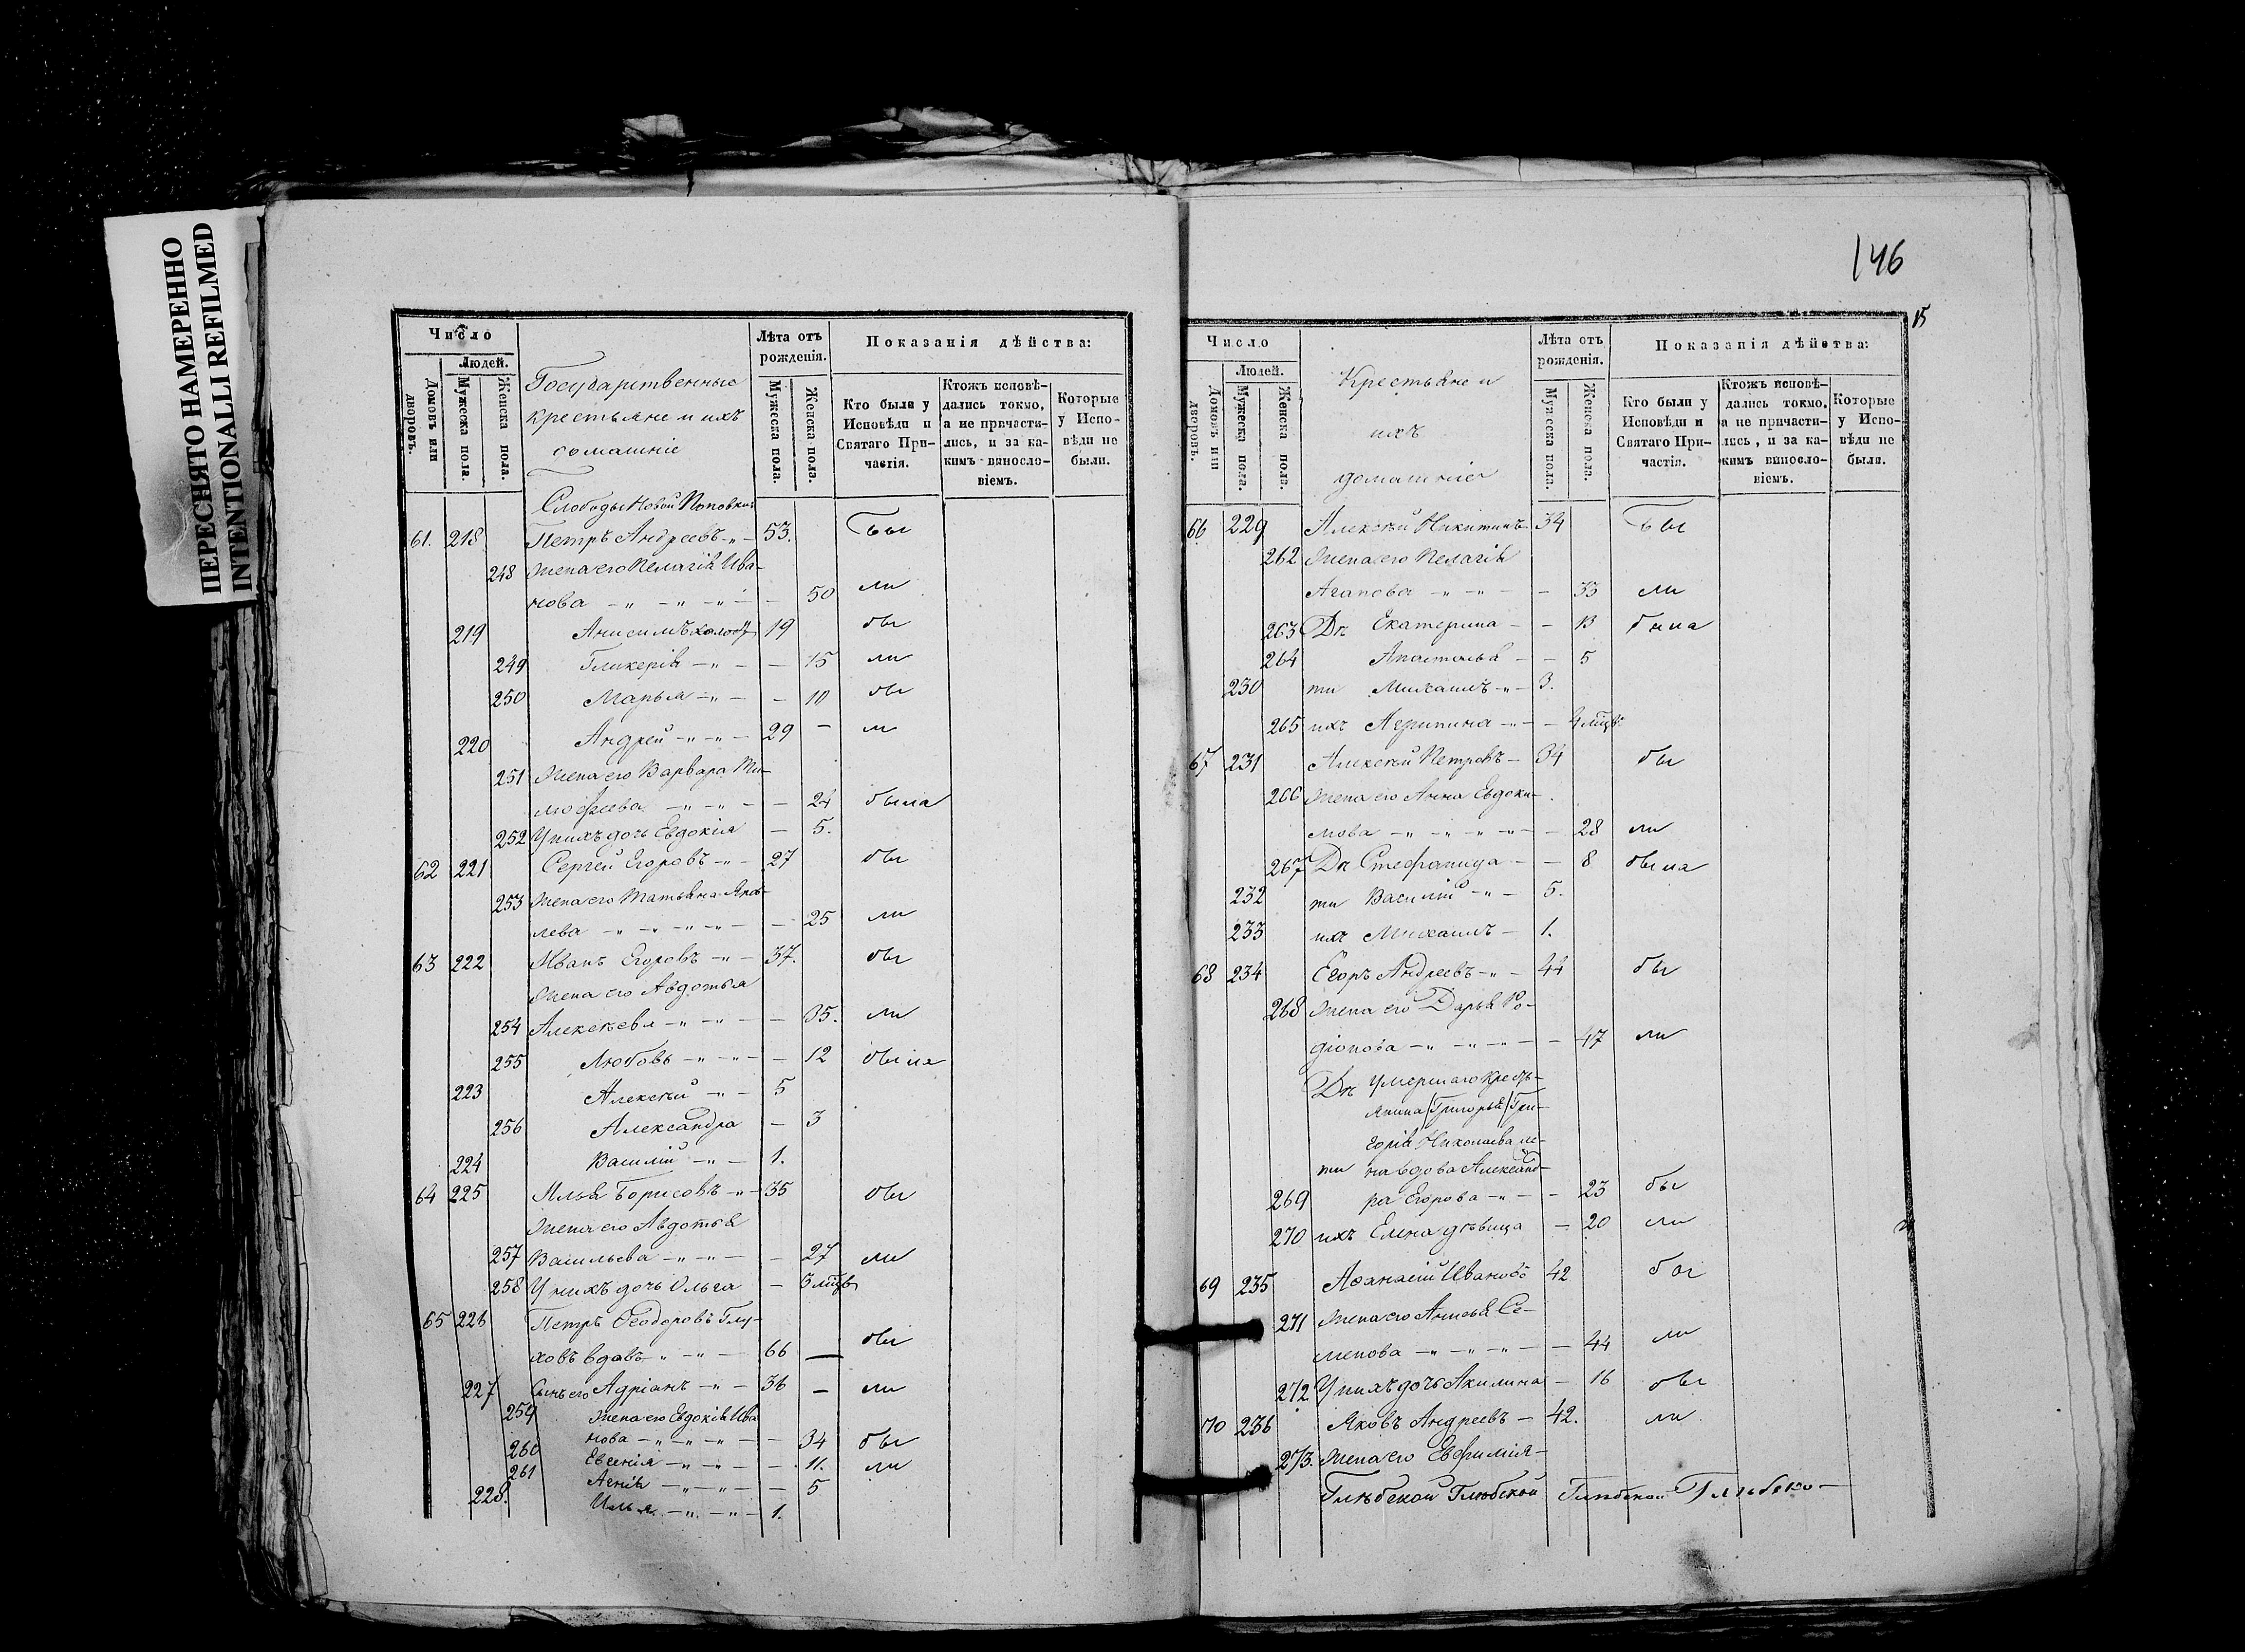 ПЕРЕСНЯТО НАМЕРЕННО
INTENTIONALLI REFILMED
Число
Людей.
Домовъ или дворовъ.
Мужеска пола.
Женска пола.
Государственные
крестьяне и ихъ
домашніе
Лѣта отъ рожденія.
Мужеска пола.
Женска пола.
Показанія дѣйства:
Кто были у Исповѣди и Святаго Причастія.
Ктожъ исповѣдались токмо, а не причастились, и за какимъ винословіемъ.
Которые у Исповѣди не были.
Слободы Новой Поповки
61. 218 Петръ Андреевъ -"- 53. бы
248 Жена его Пелагія Ива-
нова -"- -"- -"- - 50 ли
219 Анисимъ холостъ 19 бы
249 Гликерія -"- - - 15 ли
250 Марья -"- - - 10 бы
220 Андрей -"- -"- 29 - ли
251 Жена его Варвара Ти-
мофеева -"- -"- - 24 была
252 У нихъ дочь Евдокія - 5.
62 221 Сергей Егоровъ -"- 27 бы
253 Жена его Татьяна Яков-
лева -"- -"- -"- -"- - 25 ли
63 222 Иванъ Егоровъ -"- 37. бы
Жена его Авдотья
254 Алексѣева -"- -"- - 35. ли
255 Любовь -"- -"- - 12 была
223 Алексѣй -"- - 5
256 Александра - 3
224 Василій -"- - 1.
64 225 Илья Борисовъ -"- 35 бы
Жена его Авдотья
257 Васильева -"- -"- - 27 ли
258 У нихъ дочь Ольга - 3 мѣцв
65 226 Петръ Ѳеодоровъ Глу-
ховъ вдовъ -"- -"- 66 — бы
227 Сынъ его Адріанъ -"- 36 - ли
259 Жена его Евдокія Ива
нова -"- -"- -"- - 34 бы
260 Евгенія -"- -"- - 11. ли
261 Агнія -"- -"- - 5
228. Илья -"- -"- 1.
146
15
Число
Людей.
Домовъ или дворовъ.
Мужеска пола.
Женска пола.
Крестьяне и
ихъ
домашніе
Лѣта отъ рожденія.
Мужеска пола.
Женска пола.
Показанія дѣйства:
Кто были у Исповѣди и Святаго Причастія.
Ктожъ исповѣдались токмо, а не причастились, и за какимъ винословіемъ.
Которые у Исповѣди не были.
66 229 Алексѣй Никитинъ 34 бы
262 Жена его Пелагія
Агапова -"- -"- - 33 ли
263 Дѣ Екатерина - - 13 была
264 Анастасья - - 5
230 ти Михаилъ -"- 3.
265 ихъ Агрипина -"- - 4 мѣцв
67 231 Алексѣй Петровъ - 34 бы
266 Жена его Анна Евдоки-
мова -"- -"- -"- - 28 ли
267 Дѣ Стефанида - - 8 была
232 ти Василій -"- 5.
233 ихъ Михаилъ - 1.
68 234 Егоръ Андреевъ -"- 44 бы
268 Жена его Дарья Ро-
діонова -"- -"- -"- - 47 ли
Дѣ умершаго кресть-
янина /Григорья/ Гри-
горія Николаева же-
ти на вдова Александ-
269 ра Егорова -"- - 23 бы
270 ихъ Елена дѣвица - 20 ли
69 235 Аѳанасій Ивановъ 42 бы
271 Жена его Анисья Се-
менова -"- -"- -"- - 44 ли
272 У нихъ дочь Акилина - 16 бы
70 236 Яковъ Андреевъ - 42. ли
273. Жена его Евфимія -
Глѣбской Глѣбской Глѣбской